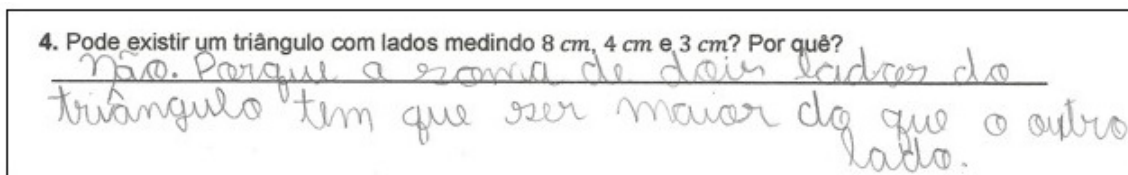 4. Pode existir um triângulo com lados medindo 8 cm, 4 cm e 3 cm? Por quê?
Não. Porque a soma de dois lados do
triângulo tem que ser maior do que o outro
lado.